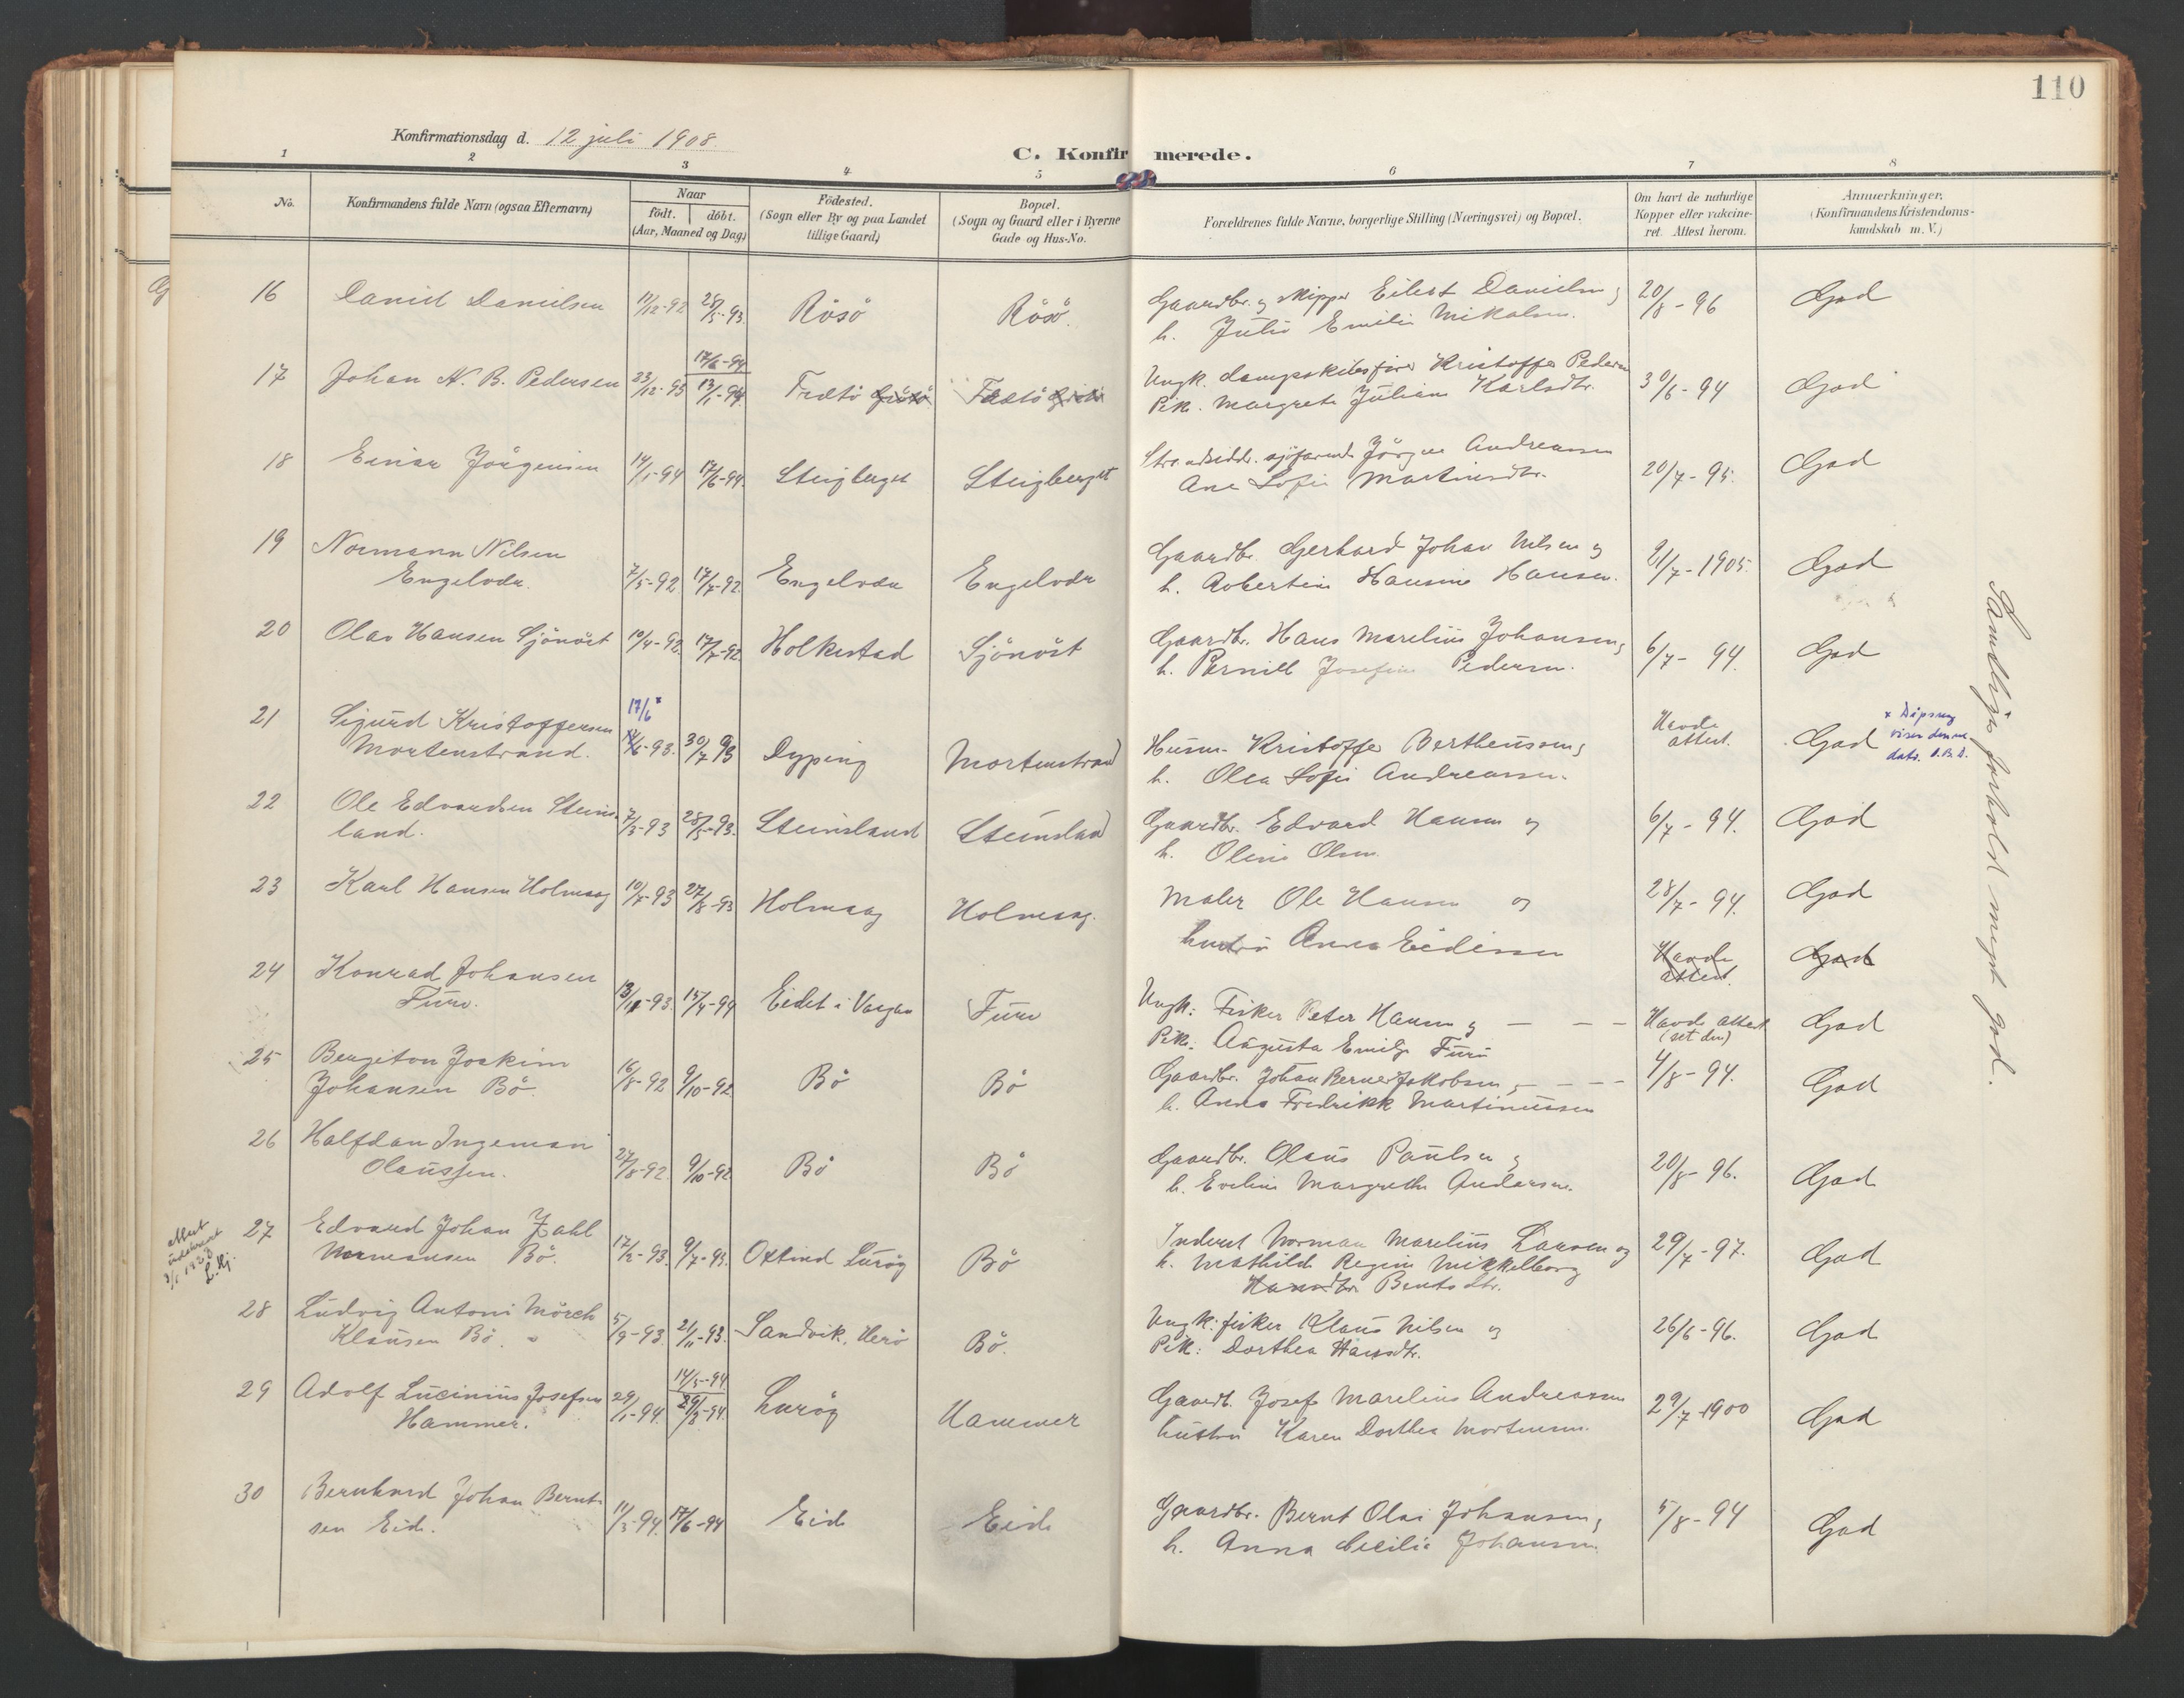 110
Konfirmationsdag d. 12 juli 1908.
C. Konfirmerede.
1 2 3 4 5 6 7 8
No.
Konfirmandens fulde Navn (ogsaa Efternavn)
Naar
födt. döbt.
(Aar, Maaned og Dag)
Födested.
(Sogn eller By og paa Landet
tillige Gaard)
Bopæl.
(Sogn og Gaard eller i Byerne
Gade og Hus-No.
Forældrenes fulde Navne, borgerlige Stilling (Næringsvei) og Bopæl.
Om havt de naturlige
Kopper eller vakcine-
ret. Attest herom.
Anmerkninger.
(Konfirmandens Kristendoms-
kundskab m. V.)
16 Daniel Danielsen 11/12-92 28/5-93. Rösö Rösö. Gaardbr. og skipper Eilert Danielsen og 20/8-96 God
h. Julie Emilie Mikalsen.
17 Johan N. B. Pedersen 23/12-93 17/6-94 13/1-94 Ungk. dampskibsfører Kristoffer Pedersen 30/6-94 God
Pik. Margrete Juliane Karlsdtr.
18 Einar Jörgensen 14/1-94 17/6-94. Steigberget Steigberget Strandsidder. sjöfarende Jörgen Andreassen 20/7-95. God
Ane Sofie Martinsdtr.
19 Normann Nilsen
Engelvær. 7/5-92 17/7-92 Engelvær Engelvær Gaardbr. Gerhard Johan Nilsen og 21/7-1905. God
h. Robertine Hansine Hansen.
20 Olav Hansen Sjönöst 10/4-92 17/7-92 Holkestad Sjönöst Gaardbr. Hans Marelius Johansen og 6/7-94. God
h. Pernille Josefine Pedersen.
21 Sigurd Kristoffersen 17/6 x
Mortenstrand. 14/6-93. 30/7 93 Dyping Mortenstrand Husm. Kristoffer Bertheussen og Havde
attest. God x Dåpsreg
viser denne
dato.
h. Olea Sofie Andreassen.
22 Ole Edvardsen Steins-
land. 7/3-93 28/5-93. Steinsland Steinsland Gaardbr. Edvard Hansen og 6/7-94. God
h. Oline Olsen.
23 Karl Hansen Holmaag 10/5-93 27/8-93 Holmaag Holmaag. Maler Ole Hansen og 28/7-94. God
hustru Anna Eidissen Havde
attest. God
24 Konrad Johansen
Furu. 13/11-93 15/4-94 Eidet i Vaagan Furu Ungk: Fisker Peter Hansen og — — — Havde attest
(set den) God
Pike: Augusta Emilje Furu
25 Bergiton Joakim
Johansen Bö. 16/8-92 9/10-92 Bö Bö Gaardbr. Johan Berner Jakobsen og — — — 4/8-94. God
h. Anna Fredrikke Martinussen
26 Halfdan Ingeman
Olaussen. 27/8-92 9/10-92 Bö Bö Gaardbr. Olaus Paulsen og 20/8-96. God
h. Eveline Margrethe Andersen.
attest
utskrevet
27 Edvard Johan Zahl
Normansen Bö. 17/2-93. 9/7-93. Oxtind Luröy Bö Inderst Norman Marelius Larsen og 29/7-97. God
h. Mathilde Regine Mikkelborg
Bentsdtr.
28 Ludvig Antoni Mörch
Klausen Bö. 5/9-93 21/11-93. Sandvik. Herö Bö. Ungk: fisker Klaus Nilsen og 26/6-96. God
Pik: Dorthea Hansdtr.
29 Adolf Lucinius Josefsen
Hammer. 29/1-94. 14/5-94 29/3-94. Luröy Hammer Gaardb. Josef Marelius Andreassen 29/7-1900 God
hustru Karen Dorthea Mortensen.
30 Bernhard Johan Bernt-
sen Eid. 11/3-94. 17/6-94 Eid Eid Gaardbr. Bernt Olai Johansen og 5/8-94 God
h. Anna Cecilie Johansen.
Samtliges forhold meget god.